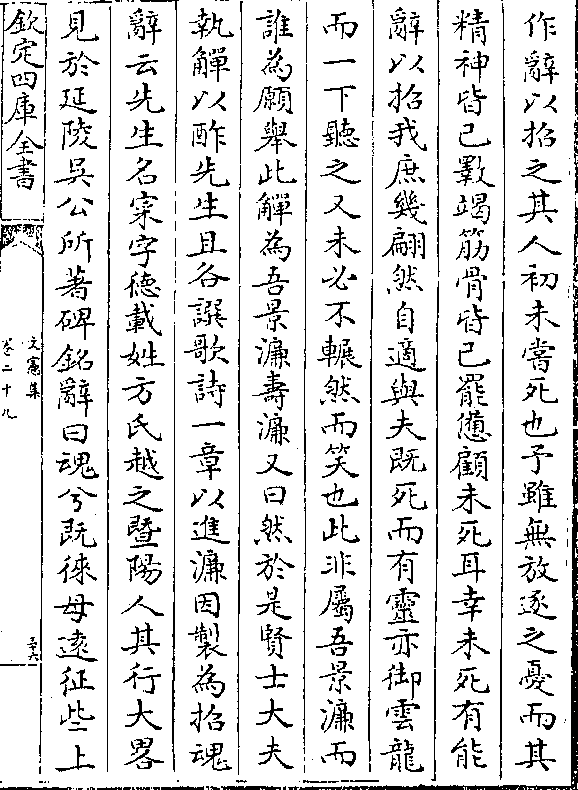 作辭以招之其人初未嘗死也予雖無放逐之憂而其
精神皆已斁竭筋骨皆已罷憊顧未死耳幸未死有能
辭以招我庶幾翩然自適與夫既死而有靈亦御雲龍
而一下聽之又未必不囅然而笑也此非屬吾景濂而
誰為願舉此觶為吾景濂壽濂又曰然於是賢士大夫
執觶以酢先生且各譔歌詩一章以進濂因製為招魂
辭云先生名宷字德載姓方氏越之暨陽人其行大畧
見於延陵吳公所著碑銘辭曰魂兮既徠毋遠征些上
欽定四庫全書
文憲集
卷二十九
三十六